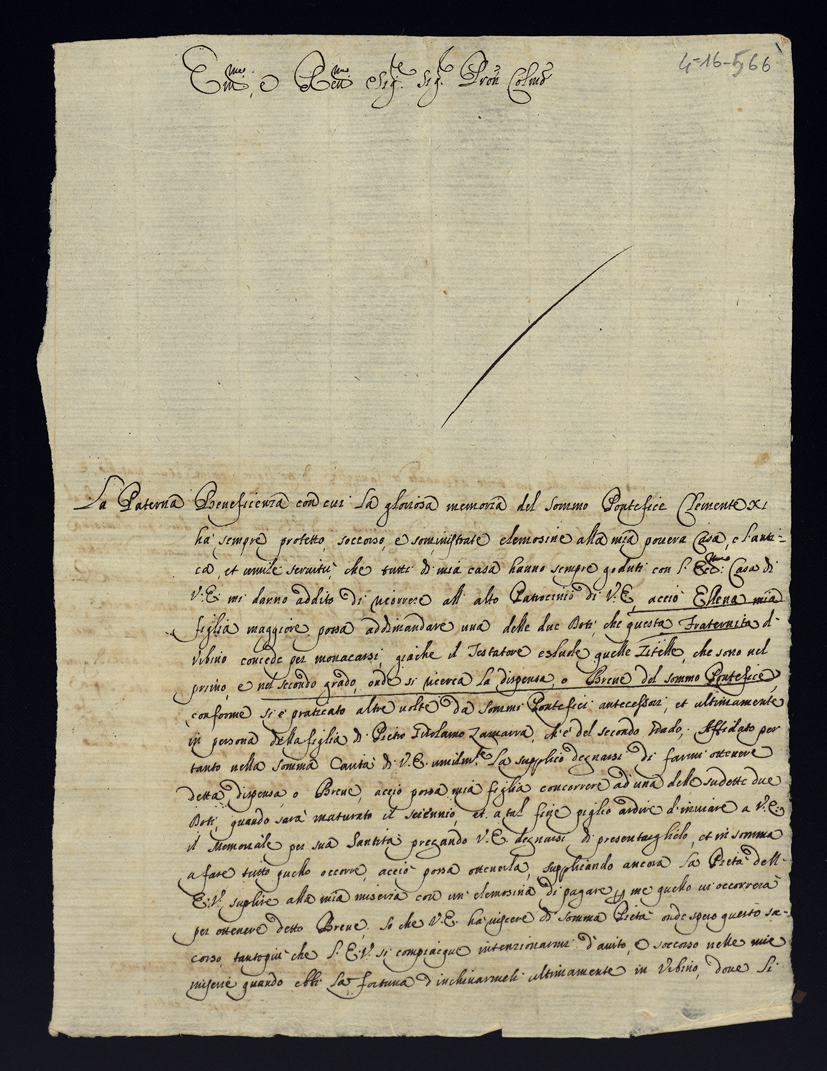 4-16-566
Em̃o, e Reũmo Sig.re Sig.re Pron Colmo
La Paterna Beneficenza con cui la gloriosa memoria del Sommo Pontefice Clemente XI
ha sempre protetto, soccorso, e somministrate elemosine alla mia povera Casa, e l'anti-
ca, et umile servitù, che tutti di mia casa hanno sempre goduti con l'Ecc:ma Casa di
V.E. mi danno addito di ricorrere all'alto Patrocinio di V.E. acciò Ellena mia
figlia maggiore possa addimandare una delle due Doti, che questa Fraternita d'
Vrbino concede per monacarsi, giache il Testatore esclude quelle Zitelle, che sono nel
primo, e nel secondo grado, onde si ricerca la dispensa, o Breve del sommo Pontefice,
conforme si è praticato altre volte da Sommi Pontefici antecessori, et ultimamente
in persona della figlia di Pietro Girolamo Zamarra, ch'è del secondo grado. Affidato per
tanto nella somma Carità di V.E. umilmte La supplico degnarsi di farmi ottenere
detta dispensa, o Breve, acciò possa mia figlia concorrere ad una delle sudette due
Doti, quando sarà maturato il sciennio, et a tal fine piglio ardire d'inviare a V.E.
il Memoriale per sua Santità pregando V.E. degnarsi di presentarglielo, et in somma
a fare tutto quello occorre, acciò possa ottenerla, supplicando ancora la Pietà dell'
E.V. suplire alla mia miseria con un'elemosina di pagare per me quello vi occorrerà
per ottenere detto Breve. So che V.E. ha viscere di somma Pietà onde spero questo so-
corso, tanto più che l'E.V. si compiacque intenzionarmi d'aiuto, e soccorso nelle mie
miserie quando ebbi la fortuna d'inchinarmeli ultimamente in Vrbino, dove si